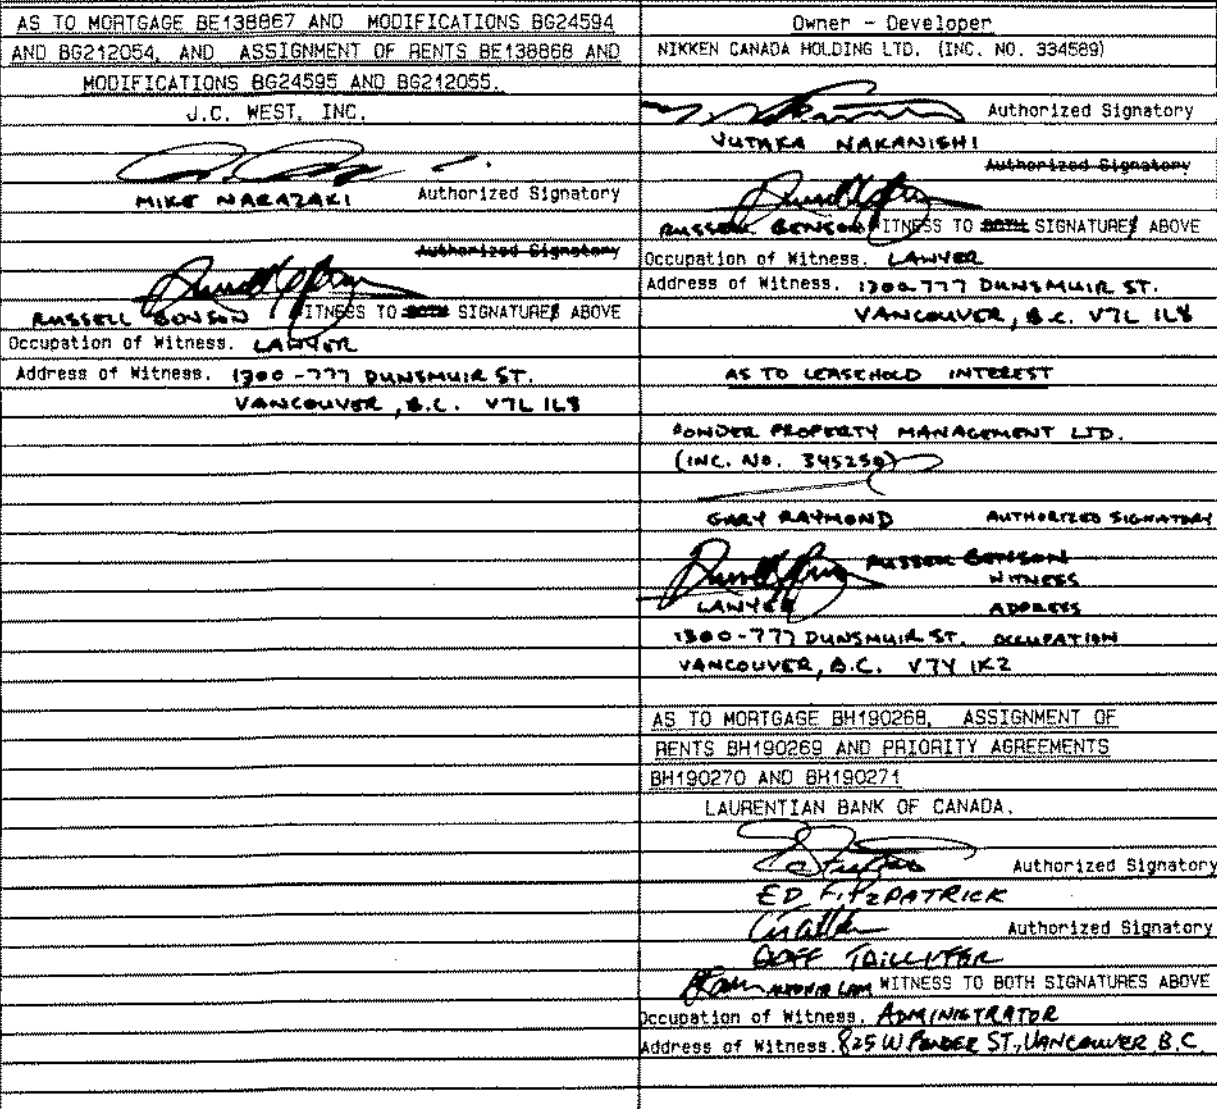 AS TO MORTGAGE BE138867 AND MODIFICATIONS BG24594
AND BG212054, AND ASSIGNMENT OF RENTS BE138868 AND
MODIFICATIONS BG24595 AND BG212055.
J.C. WEST, INC.
MIKE NARAZAKI Authorized Signatory
Authorized Signatory
RUSSELL BENSON WITNESS TO BOTH SIGNATURES ABOVE
Occupation of Witness. LAWYER
Address of Witness. 1300-777 DUNSMUIR ST.
VANCOUVER, B.C. V7L 1L8
Owner - Developer
NIKKEN CANADA HOLDING LTD. (INC. NO. 334589)
Authorized Signatory
YUTAKA NAKANISHI
Authorized Signatory
RUSSELL BENSON WITNESS TO BOTH SIGNATURES ABOVE
Occupation of Witness. LAWYER
Address of Witness. 1300-777 DUNSMUIR ST.
VANCOUVER, B.C. V7L 1L8
AS TO LEASEHOLD INTEREST
PONDER PROPERTY MANAGEMENT LTD.
(INC. NO. 345250)
GARY RAYMOND AUTHORIZED SIGNATORY
RUSSELL BENSON
WITNESS
LAWYER ADDRESS
1300-777 DUNSMUIR ST. OCCUPATION
VANCOUVER, B.C. V7Y 1K2
AS TO MORTGAGE BH190268, ASSIGNMENT OF
RENTS BH190269 AND PRIORITY AGREEMENTS
BH190270 AND BH190271
LAURENTIAN BANK OF CANADA.
Authorized Signatory
ED FITZPATRICK
Authorized Signatory
GOFF TAILLEFER
LAM WITNESS TO BOTH SIGNATURES ABOVE
Occupation of Witness. ADMINISTRATOR
Address of Witness. 825 W PENDER ST., VANCOUVER, B.C.